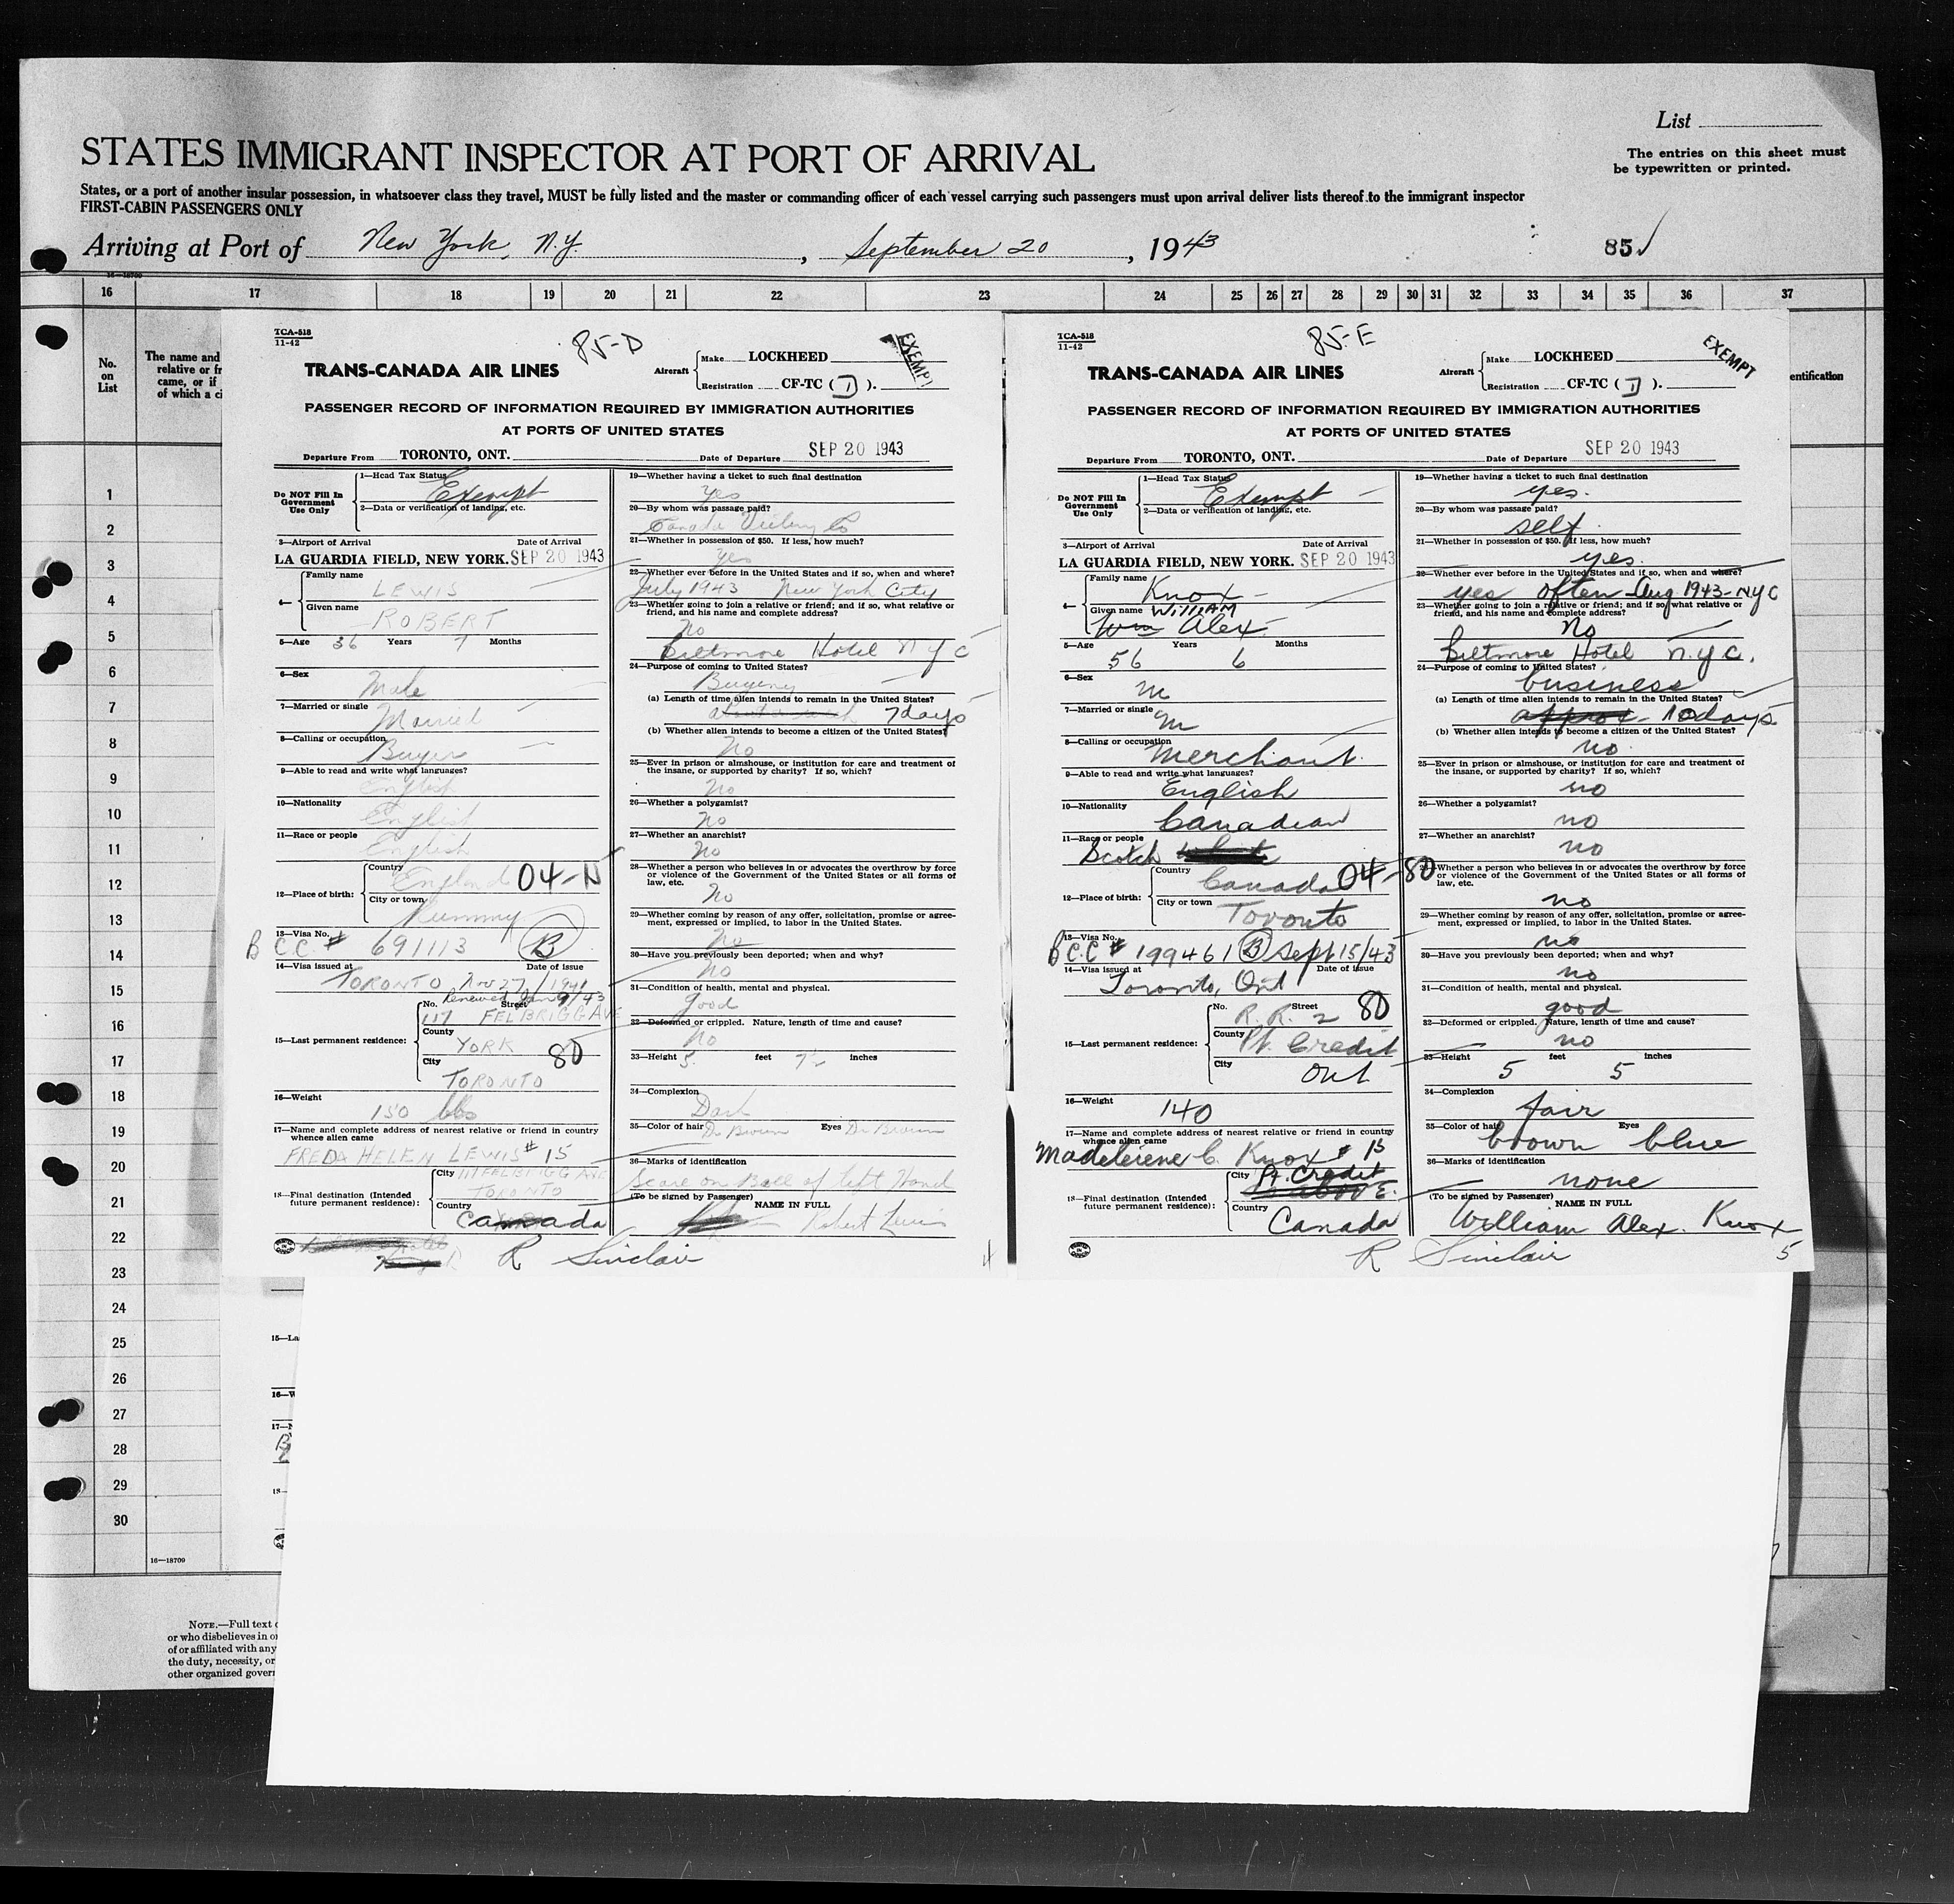 List
STATES IMMIGRANT INSPECTOR AT PORT OF ARRIVAL
The entries on this sheet must
be typewritten or printed.
States, or a port of another insular possession, in whatsoever class they travel, MUST be fully listed and the master or commanding officer of each vessel carrying such passengers must upon arrival deliver lists thereof to the immigrant inspector
FIRST-CABIN PASSENGERS ONLY
Arriving at Port of New York, N.Y. , September 20 , 1943
85
16 17 18 19 20 21 22 23 24 25 26 27 28 29 30 31 32 33 34 35 36 37
No.
on
List
The name and
relative or fr
came, or if
of which a ci
entification
1
2
3
4
5
6
7
8
9
10
11
12
13
14
15
16
17
18
19
20
21
22
23
24
25
26
27
28
29
30
16—18709
NOTE.—Full text
or who disbelieves in o
of or affiliated with any
the duty, necessity, or
other organized gover
TCA-518
11-42
85-D
EXEMPT
TRANS-CANADA AIR LINES
Aircraft Make LOCKHEED
Registration CF-TC ( D ).
PASSENGER RECORD OF INFORMATION REQUIRED BY IMMIGRATION AUTHORITIES
AT PORTS OF UNITED STATES
Departure From TORONTO, ONT. Date of Departure SEP 20 1943
Do NOT Fill In
Government
Use Only
1—Head Tax Status
Exempt
2—Data or verification of landing, etc.
3—Airport of Arrival Date of Arrival
LA GUARDIA FIELD, NEW YORK. SEP 20 1943
4— Family name
LEWIS
Given name
ROBERT
5—Age 36 Years 7 Months
6—Sex
Male
7—Married or single
Married
8—Calling or occupation
Buyer
9—Able to read and write what languages?
English
10—Nationality
English
11—Race or people
English
12—Place of birth: Country
England 04-N
City or town
13—Visa No.
B C.C # 691113 B
14—Visa issued at Date of issue
TORONTO Nov 27/1941
Renewed Jan 9/43
15—Last permanent residence: No. Street
117 FELBRIGG AVE
County
YORK 80
City
TORONTO
16—Weight
150 lbs
17—Name and complete address of nearest relative or friend in country
whence alien came
FREDA HELEN LEWIS # 15
18—Final destination (Intended
future permanent residence): City 117 FELBRIGG AVE
TORONTO
Country
Canada
R Sinclair
19—Whether having a ticket to such final destination
Yes
20—By whom was passage paid?
Canada
21—Whether in possession of $50. If less, how much?
Yes
22—Whether ever before in the United States and if so, when and where?
July 1943 New York City
23—Whether going to join a relative or friend; and if so, what relative or
friend, and his name and complete address?
No
Biltmore Hotel N Y C
24—Purpose of coming to United States?
Buying
(a) Length of time alien intends to remain in the United States?
7 days
(b) Whether alien intends to become a citizen of the United States?
No
25—Ever in prison or almshouse, or institution for care and treatment of
the insane, or supported by charity? If so, which?
No
26—Whether a polygamist?
No
27—Whether an anarchist?
No
28—Whether a person who believes in or advocates the overthrow by force
or violence of the Government of the United States or all forms of
law, etc.
No
29—Whether coming by reason of any offer, solicitation, promise or agree-
ment, expressed or implied, to labor in the United States.
No
30—Have you previously been deported; when and why?
No
31—Condition of health, mental and physical.
Good
32—Deformed or crippled. Nature, length of time and cause?
No
33—Height 5 feet 7 inches
34—Complexion
Dark
35—Color of hair Dr Brown Eyes Dr Brown
36—Marks of identification
Scare on Ball of left Hand
(To be signed by Passenger) NAME IN FULL
Robert Lewis
4
TCA-518
11-42
85-E
EXEMPT
TRANS-CANADA AIR LINES
Aircraft Make LOCKHEED
Registration CF-TC ( D ).
PASSENGER RECORD OF INFORMATION REQUIRED BY IMMIGRATION AUTHORITIES
AT PORTS OF UNITED STATES
Departure From TORONTO, ONT. Date of Departure SEP 20 1943
Do NOT Fill In
Government
Use Only
1—Head Tax Status
Exempt
2—Data or verification of landing, etc.
3—Airport of Arrival Date of Arrival
LA GUARDIA FIELD, NEW YORK. SEP 20 1943
4— Family name
Knox
Given name WILLIAM
Wm Alex.
5—Age 56 Years 6 Months
6—Sex
m
7—Married or single
m
8—Calling or occupation
Merchant.
9—Able to read and write what languages?
English
10—Nationality
Canadian
11—Race or people
Scotch
12—Place of birth: Country
Canada 04-80
City or town
Toronto
13—Visa No.
B C.C # 199461 B Sept 15/43
14—Visa issued at Date of issue
Toronto, Ont
15—Last permanent residence: No. Street
R. R. 2 80
County
Pt. Credit
City
Ont
16—Weight
140
17—Name and complete address of nearest relative or friend in country
whence alien came
Madeleiene C. Knox # 15
18—Final destination (Intended
future permanent residence): City Pt. Credit
Country
Canada
R Sinclair
19—Whether having a ticket to such final destination
yes.
20—By whom was passage paid?
self.
21—Whether in possession of $50. If less, how much?
yes.
22—Whether ever before in the United States and if so, when and where?
yes often - Aug 1943 - NYC
23—Whether going to join a relative or friend; and if so, what relative or
friend, and his name and complete address?
No
Biltmore Hotel n.y.c.
24—Purpose of coming to United States?
business
(a) Length of time alien intends to remain in the United States?
approx - 10 days
(b) Whether alien intends to become a citizen of the United States?
no.
25—Ever in prison or almshouse, or institution for care and treatment of
the insane, or supported by charity? If so, which?
no
26—Whether a polygamist?
no
27—Whether an anarchist?
no
Whether a person who believes in or advocates the overthrow by force
or violence of the Government of the United States or all forms of
law, etc.
no
29—Whether coming by reason of any offer, solicitation, promise or agree-
ment, expressed or implied, to labor in the United States.
no
30—Have you previously been deported; when and why?
no
31—Condition of health, mental and physical.
good
32—Deformed or crippled. Nature, length of time and cause?
no
33—Height 5 feet 5 inches
34—Complexion
fair
35—Color of hair brown Eyes blue
36—Marks of identification
none
(To be signed by Passenger) NAME IN FULL
William Alex. Knox
5
15—La
16—W
17—
18—